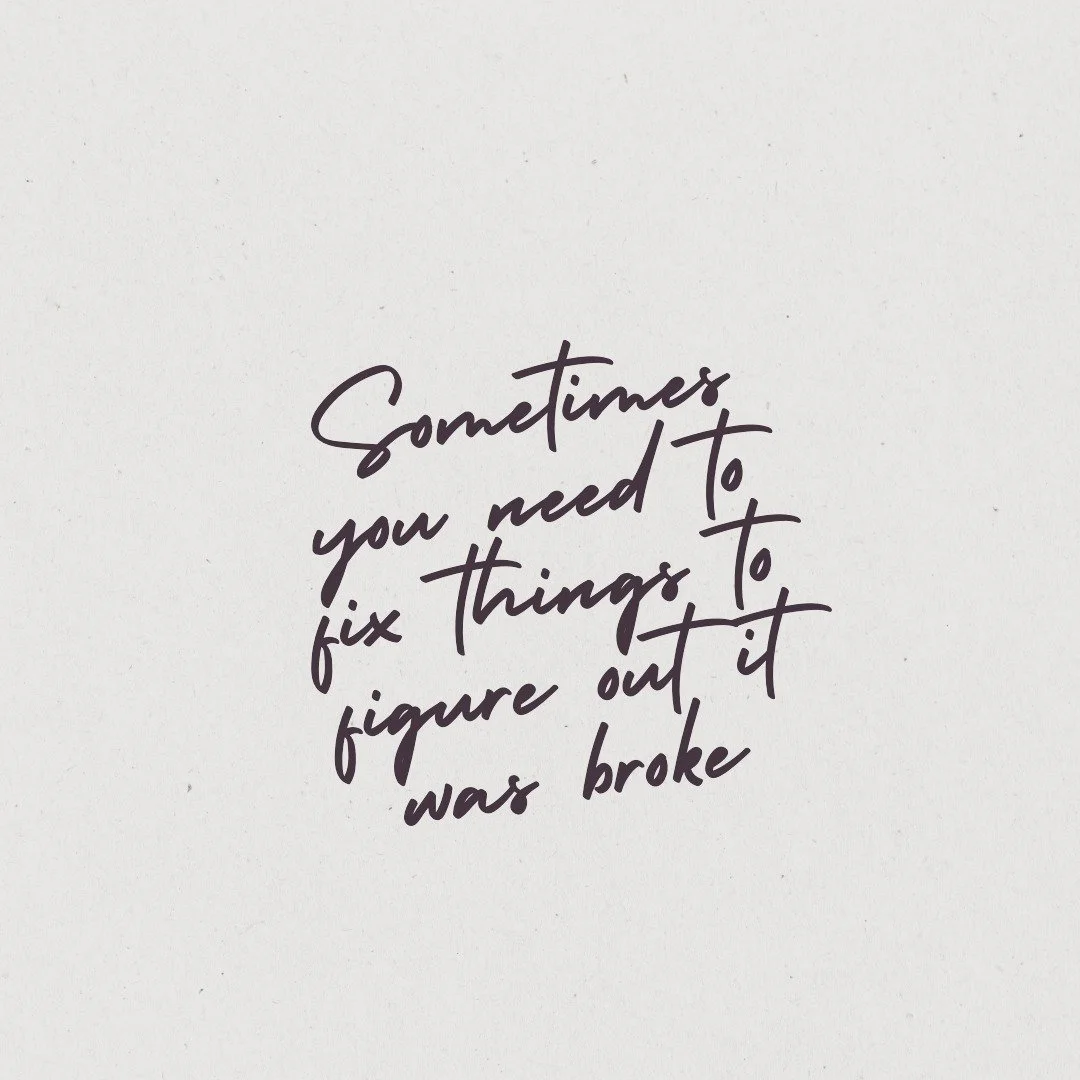 Sometimes
you need to
fix things to
figure out it
was broke